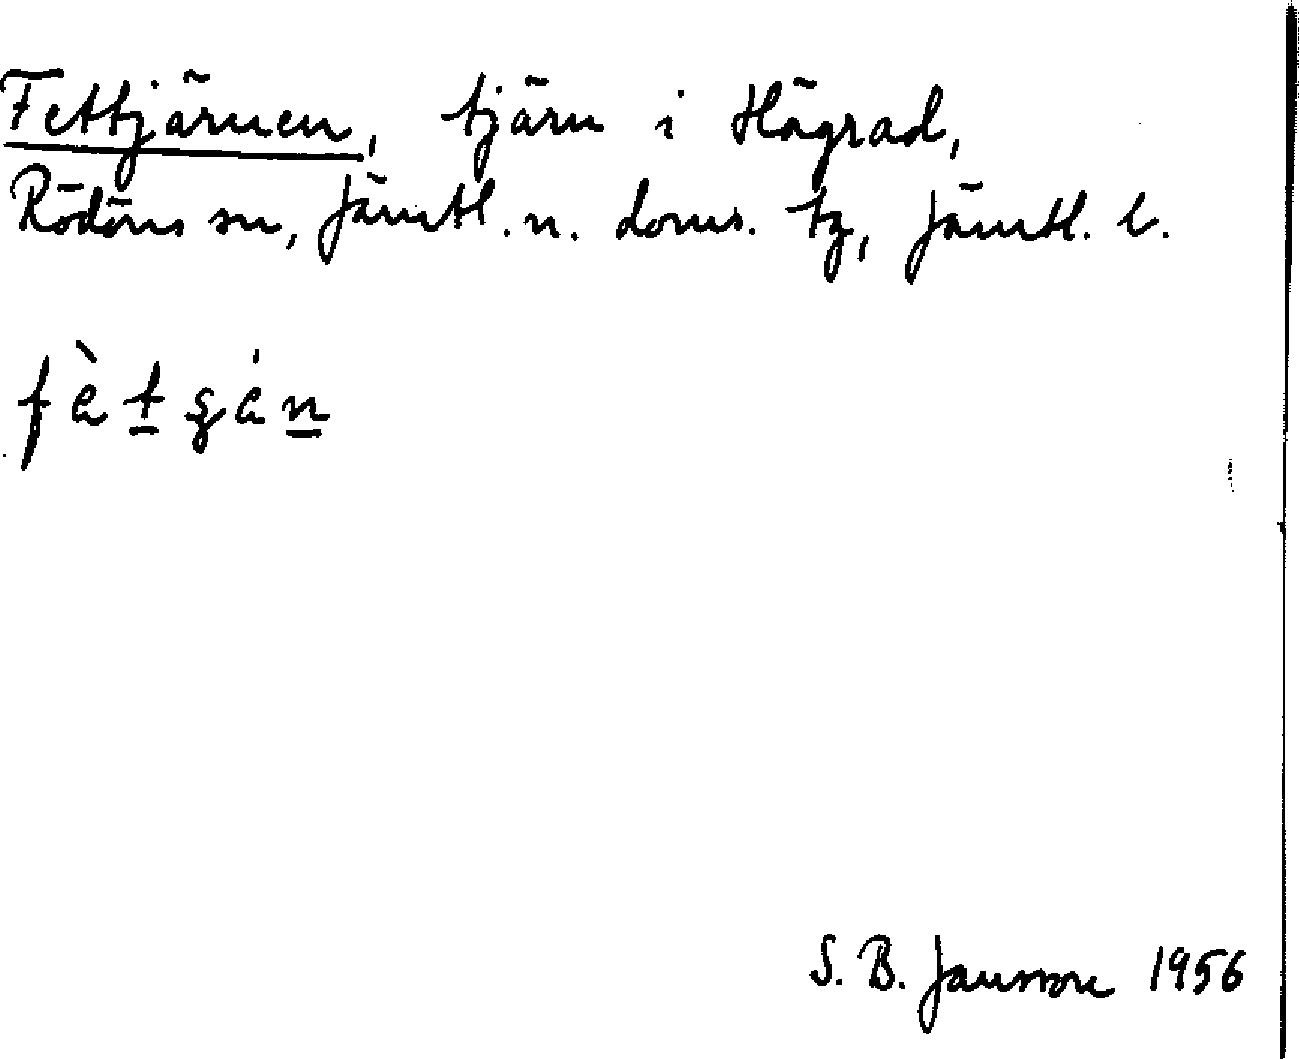 Fettjärnen, tjärn i Högrad,
Rödöns sn, Jämtl. n. doms. tg, Jämtl. l.
S. B. Jansson 1956